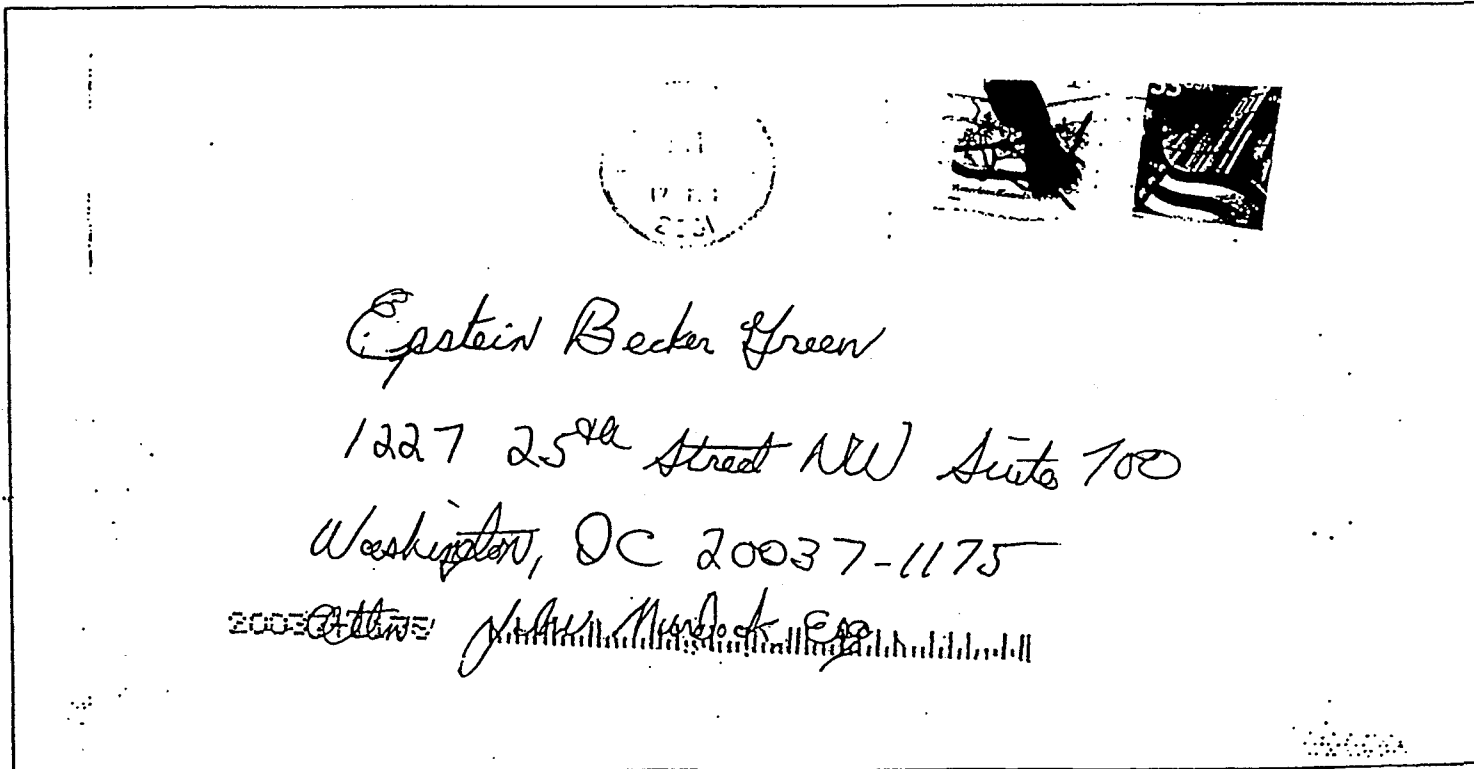 2001
33 USA
Epstein Becker Green
1227 25th Street NW Suite 700
Washington, DC 20037-1175
Attn John Murdock Esq